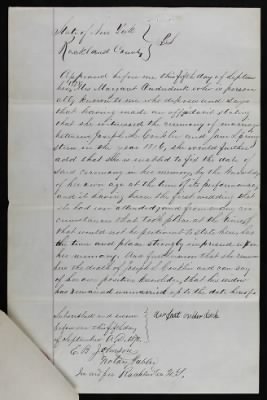 State of New York
Rockland County } SS
Appeared before me this fifth day of Septem
ber, Mrs Margaret Onderdonk who is person
ally known to me who deposes and says
that having made an affidavit stating
that she witnessed the ceremony of marriage
between Joseph and Jane
in the year 1816, she would further
add that she is enabled to fix the date of
said ceremony in her memory by the knowledge
of her own age at the time of its performance,
and it having been the first wedding that
she had ever attended, and from any cir
cumstances that took place at the time
that would not be pertinent to state here, has
the time and place strongly impressed upon
her memory. And furthermore that she remem
bers the death of Joseph and can say
of his own positive knowledge, that his widow
has remained unmarried up to the date hereof
Subscribed and sworn
before me this fifth day
of September A.D. 187
E. B. Johnson
Notary Public
In and for Rockland Co N.Y.